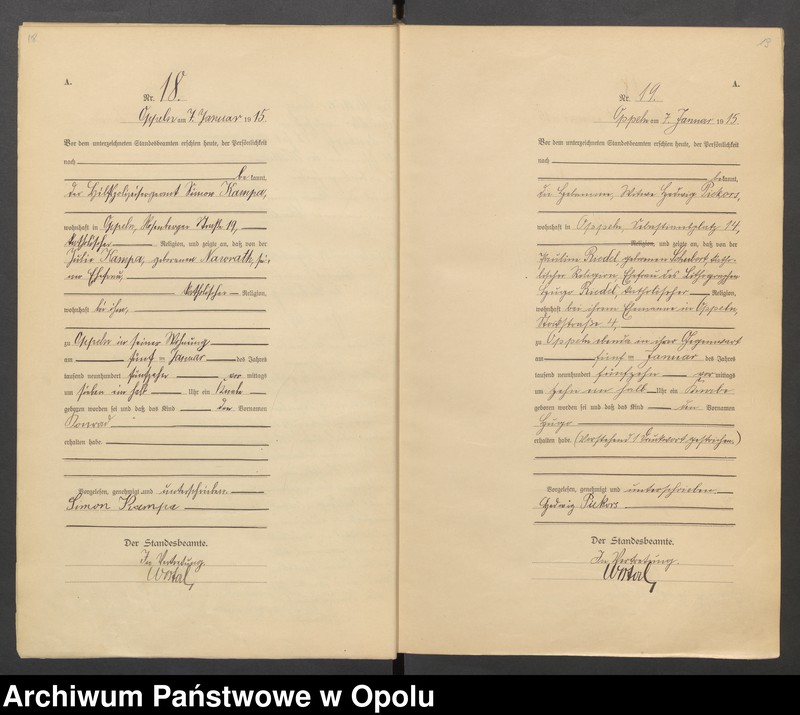 18
A.
Nr. 18.
Oppeln am 7. Januar 1915
Vor dem unterzeichneten Standesbeamten erschien heute, der Persönlichkeit
nach
be kannt,
der Hilfspolizeisergeant Simon Kampa,
wohnhaft in Oppeln, Rosenberger Straße 19,
katholischer Religion, und zeigte an, daß von der
Julie Kampa, geborenen Nawrath, sei-
ner Ehefrau,
katholischer Religion,
wohnhaft bei ihm,
zu Oppeln in seiner Wohnung
am fünf ten Januar des Jahres
tausend neunhundert fünfzehn vor mittags
um sieben ein halb Uhr ein Knabe
geboren worden sei und daß das Kind den Vornamen
Konrad
erhalten habe.
Vorgelesen, genehmigt und unterschrieben.
Simon Kampa
Der Standesbeamte.
In Vertretung.
19
A.
Nr. 19.
Oppeln am 7. Januar 1915.
Vor dem unterzeichneten Standesbeamten erschien heute, der Persönlichkeit
nach
bekannt,
die Hebamme, Witwe Hedwig Piekors,
wohnhaft in Oppeln, Sebastiansplatz 14,
Religion, und zeigte an, daß von der
Pauline Riedel geborenen Schubert, katho-
lischer Religion, Ehefrau des Lithographen
Hugo Riedel, katholischer Religion,
wohnhaft bei ihrem Ehemanne in Oppeln,
4,
zu Oppeln ebenda in ihrer Gegenwart
am fünf ten Januar des Jahres
tausend neunhundert fünfzehn vor mittags
um zehn ein halb Uhr ein Knabe
geboren worden sei und daß das Kind den Vornamen
Hugo
erhalten habe. (Vorstehend 1 Druckwort gestrichen.)
Vorgelesen, genehmigt und unterschrieben
Hedwig Piekors
Der Standesbeamte.
In Vertretung.
Archiwum Państwowe w Opolu